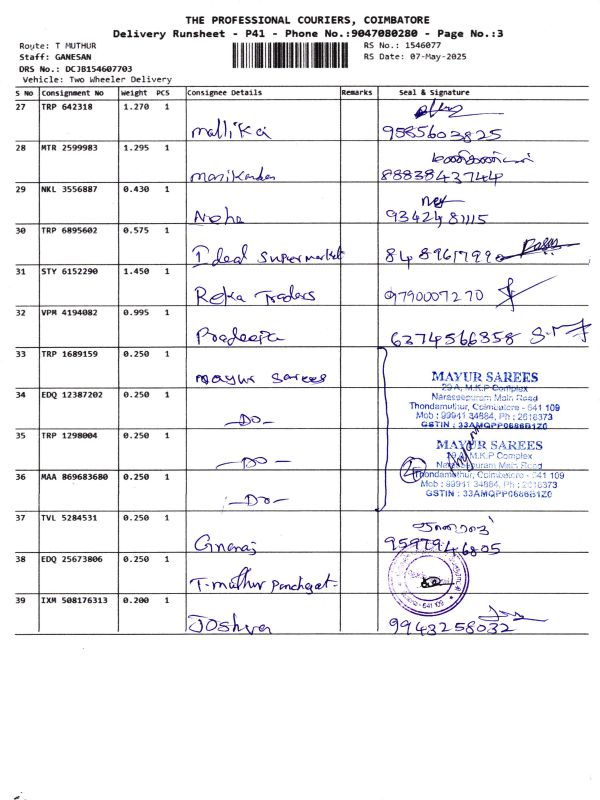 THE PROFESSIONAL COURIERS, COIMBATORE
Delivery Runsheet - P41 - Phone No.:9047080280 - Page No.:3
Route: T MUTHUR
RS No.: 1546077
Staff: GANESAN
RS Date: 07-May-2025
DRS No.: DCJB154607703
Vehicle: Two Wheeler Delivery
S NO Consignment No Weight PCS Consignee Details Remarks Seal & Signature
27 TRP 642318 1.270 1
Mallika 9585603825
28 MTR 2599983 1.295 1
Manikandan 8883843744
29 NKL 3556887 0.430 1
Neha 9342481115
30 TRP 6895602 0.575 1
Ideal Supermarket
31 STY 6152290 1.450 1
Reka Traders 9790007270
32 VPM 4194082 0.995 1
Pradeepa 6374566358
33 TRP 1689159 0.250 1
Mayur Sarees
MAYUR SAREES
29 A, M.K.P Complex
Naraseepuram Main Road
Thondamuthur, Coimbatore - 641 109
Mob : 99941 34884, Ph : 2618373
GSTIN : 33AMQPP0686B1Z0
34 EDQ 12387202 0.250 1
-Do-
35 TRP 1298004 0.250 1
-Do-
MAYUR SAREES
29 A, M.K.P Complex
Naraseepuram Main Road
Thondamuthur, Coimbatore - 641 109
Mob : 99941 34884, Ph : 2618373
GSTIN : 33AMQPP0686B1Z0
36 MAA 869683680 0.250 1
-Do-
37 TVL 5284531 0.250 1
Gnanaj 9597946805
38 EDQ 25673806 0.250 1
T. muthur Panchayat
39 IXM 508176313 0.200 1
Joshva 9943258032